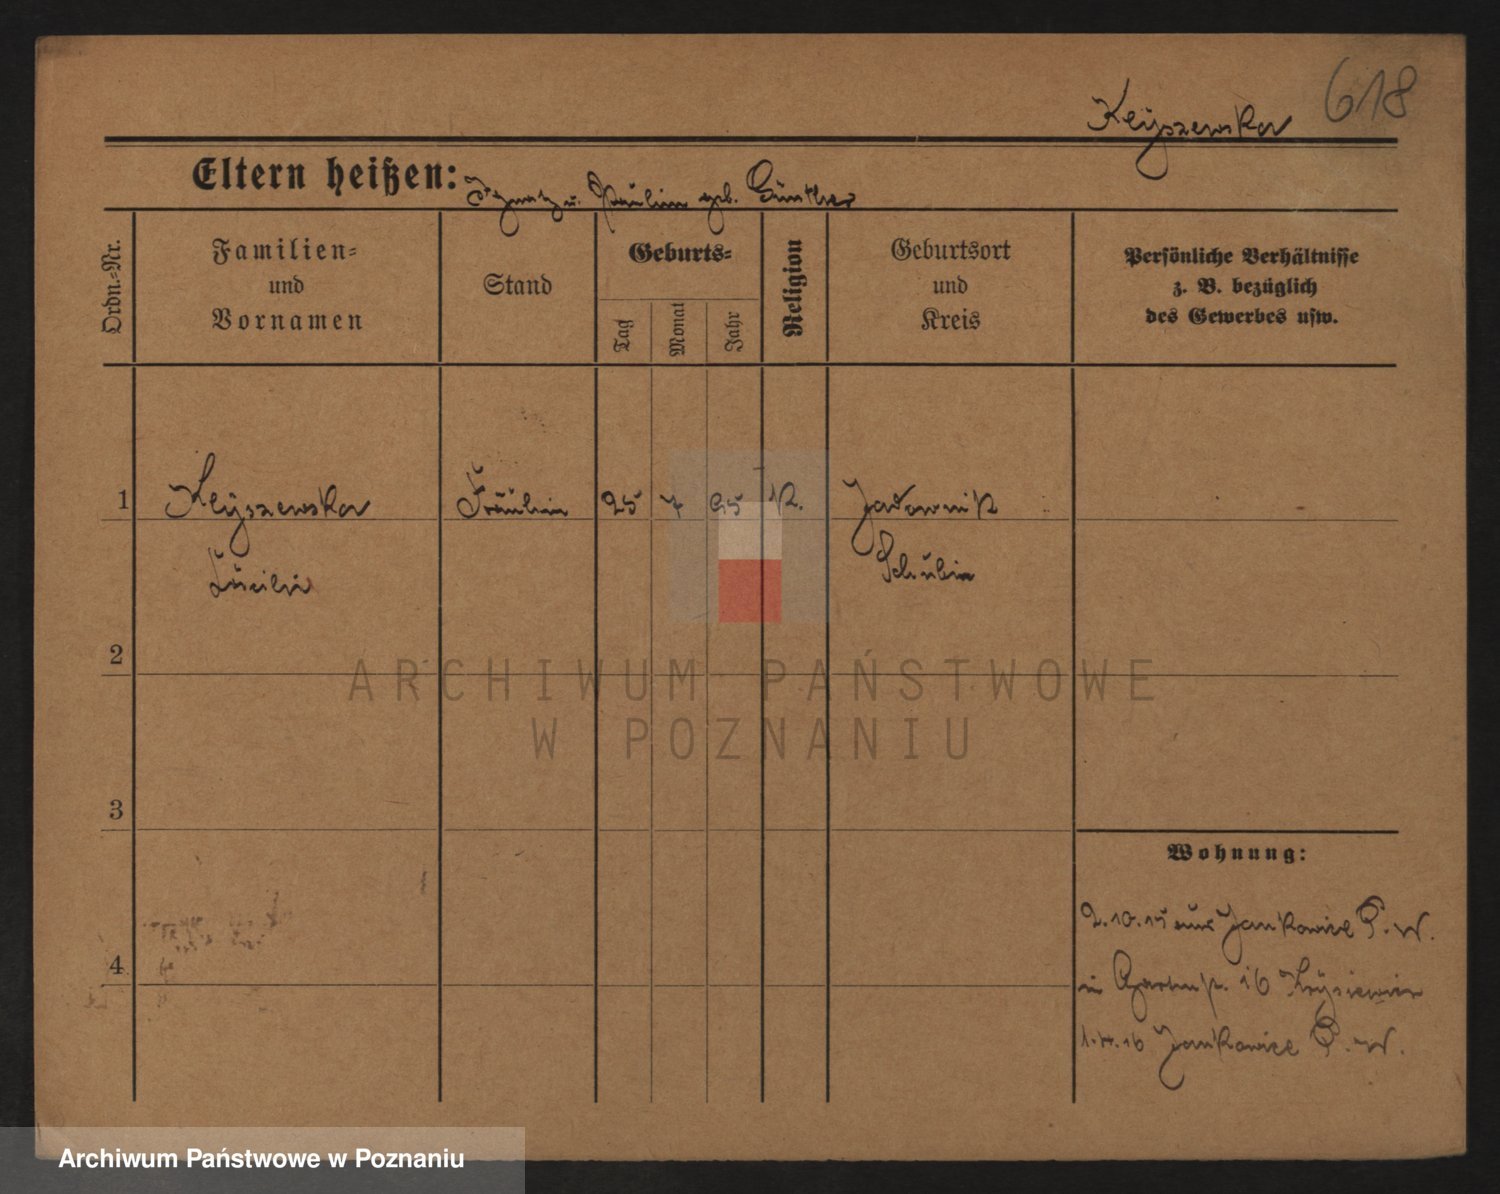 618
Kejszewska
Eltern heißen: Ignatz u. Paulin geb. Günther
Ordn.-Nr.
Familien- und Vornamen
Stand
Geburts-
Tag
Monat
Jahr
Religion
Geburtsort und Kreis
Persönliche Verhältnisse z. B. bezüglich des Gewerbes usw.
1 Fräulein 25 7 95 K. Jadownik
Schubin
2
3
4
Wohnung:
2.10.15 aus Jankowice P. W.
in Gartenstr. 16
1.4.16 Jankowice P. W.
ARCHIWUM PAŃSTWOWE
W POZNANIU
Archiwum Państwowe w Poznaniu